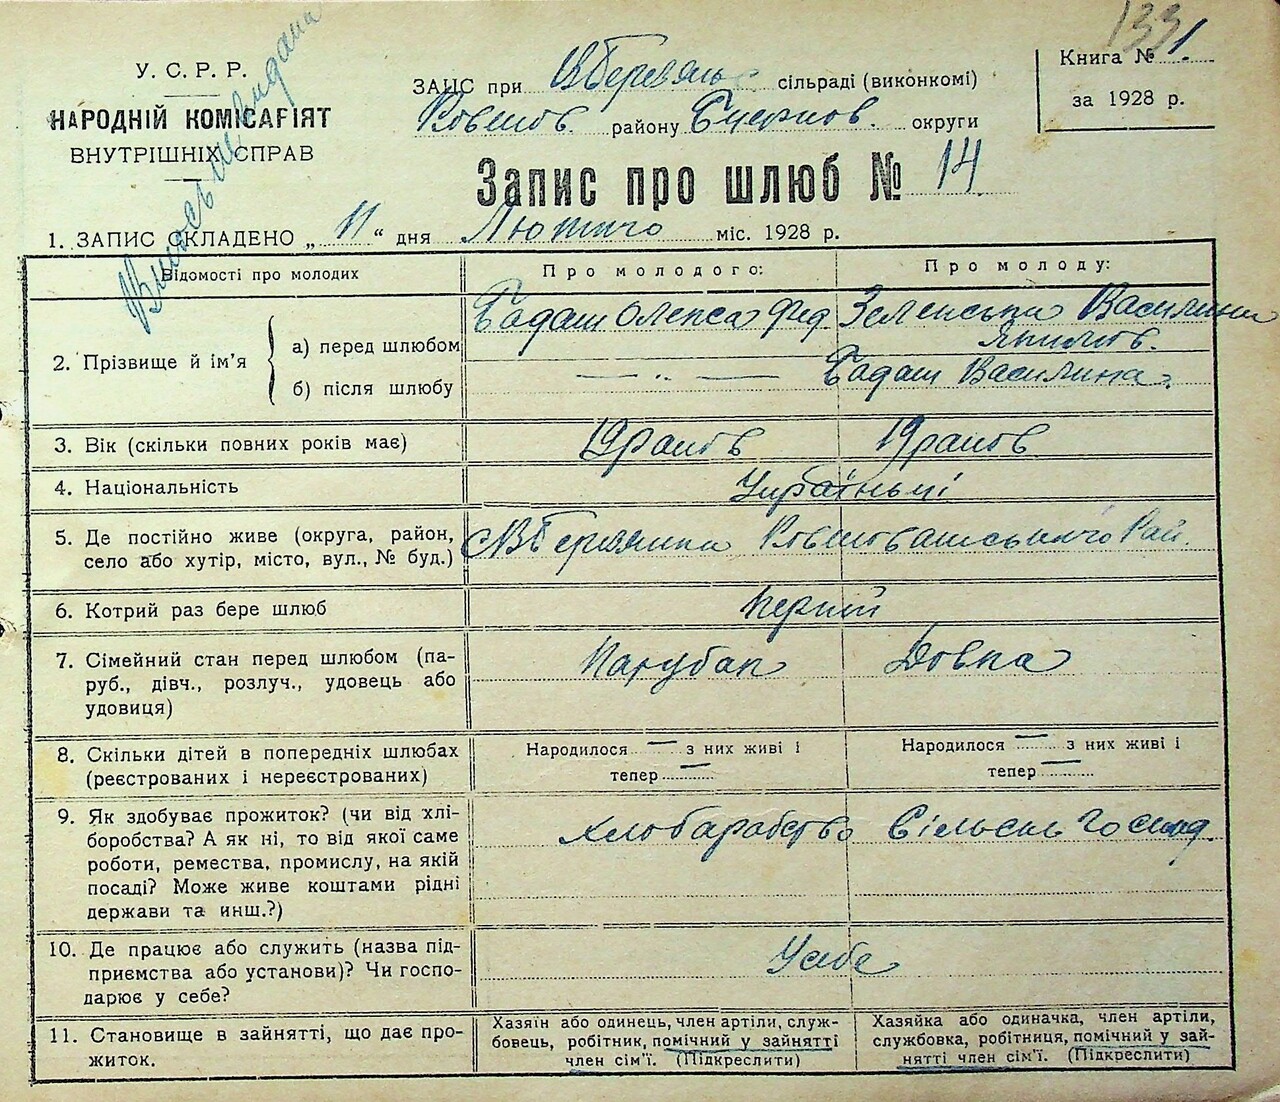 133
1
Виписъ видана
У. С. Р. Р.
НАРОДНІЙ КОМІСАРІЯТ
ВНУТРІШНІХ СПРАВ
ЗАГС при сільраді (виконкомі)
району округи
Книга № 1
за 1928 р.
Запис про шлюб № 14
1. ЗАПИС СКЛАДЕНО „ 11 “ дня Лютого міс. 1928 р.
Відомості про молодих
Про молодого:
Про молоду:
2. Прізвище й ім’я
а) перед шлюбом
Бадаш Олекса Фед
Зеленська Василина
Якимов.
б) після шлюбу
— „ —
Бадаш Василина
3. Вік (скільки повних років має)
19 раков
19 раков
4. Національність
Українські
5. Де постійно живе (округа, район,
село або хутір, місто, вул., № буд.)
Рай.
6. Котрий раз бере шлюб
Перший
7. Сімейний стан перед шлюбом (па-
руб., дівч., розлуч., удовець або
удовиця)
Парубак
Довка
8. Скільки дітей в попередніх шлюбах
(реєстрованих і нереєстрованих)
Народилося — з них живі і
тепер —
Народилося — з них живі і
тепер —
9. Як здобуває прожиток? (чи від хлі-
боробства? А як ні, то від якої саме
роботи, ремества, промислу, на якій
посаді? Може живе коштами рідні
держави та инш.?)
Хлобаробство
Сільськ Господ.
10. Де працює або служить (назва під-
приємства або установи)? Чи госпо-
дарює у себе?
У себе
11. Становище в зайнятті, що дає про-
житок.
Хазяїн або одинець, член артіли, служ-
бовець, робітник, помічний у зайнятті
член сім’ї. (Підкреслити)
Хазяйка або одиначка, член артіли,
службовка, робітниця, помічний у зай-
нятті член сім’ї. (Підкреслити)